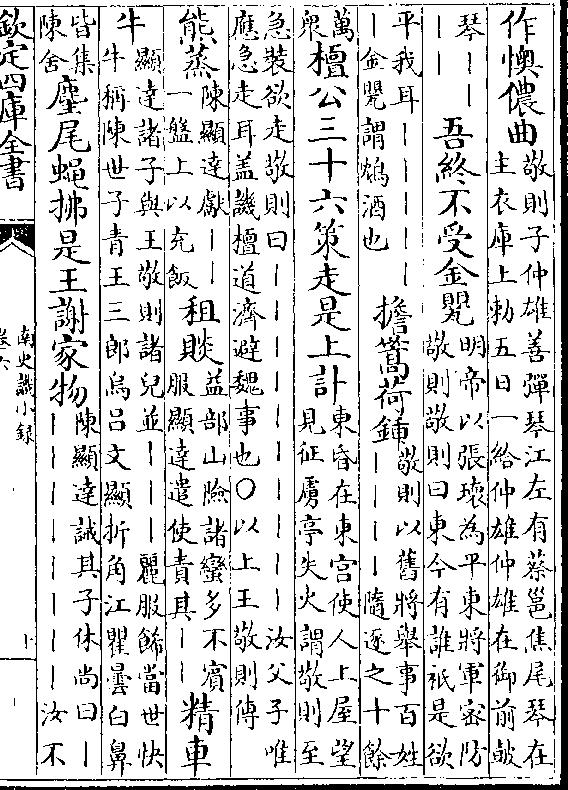 作懊儂曲敬則子仲雄善彈琴江左有蔡邕焦尾琴在
主衣庫上勅五日一給仲雄仲雄在御前皷
琴丨丨
丨丨
吾終不受金甖明帝以張瓌為平東將軍宻防
敬則敬則曰東今有誰祇是欲
平我耳丨丨丨丨丨
丨金甖謂鴆酒也
擔篙荷鍤敬則以舊將舉事百姓
丨丨丨丨隨逐之十餘
萬
衆
檀公三十六策走是上計東昏在東宮使人上屋望
見征虜亭失火謂敬則至
急裝欲走敬則曰丨丨丨丨丨丨丨丨丨丨汝父子唯
應急走耳盖譏檀道濟避魏事也〇以上王敬則傳
熊蒸陳顯達獻丨丨
一盤上以充飯
租賧益部山險諸蠻多不賓
服顯達遣使責其丨丨
精車
牛顯達諸子與王敬則諸兒並丨丨丨麗服餙當世快
牛稱陳世子青王三郎烏吕文顯折角江瞿曇白鼻
皆集
陳舍
麈尾蝇拂是王謝家物陳顯達誡其子休尚曰丨
丨丨丨丨丨丨丨丨汝不
欽定四庫全書
南史識小録
卷六